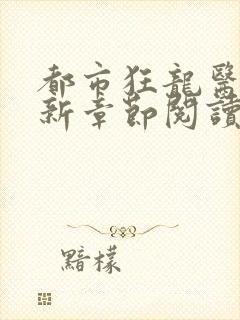 都市狂龍醫
新章節閱讀
黯樣